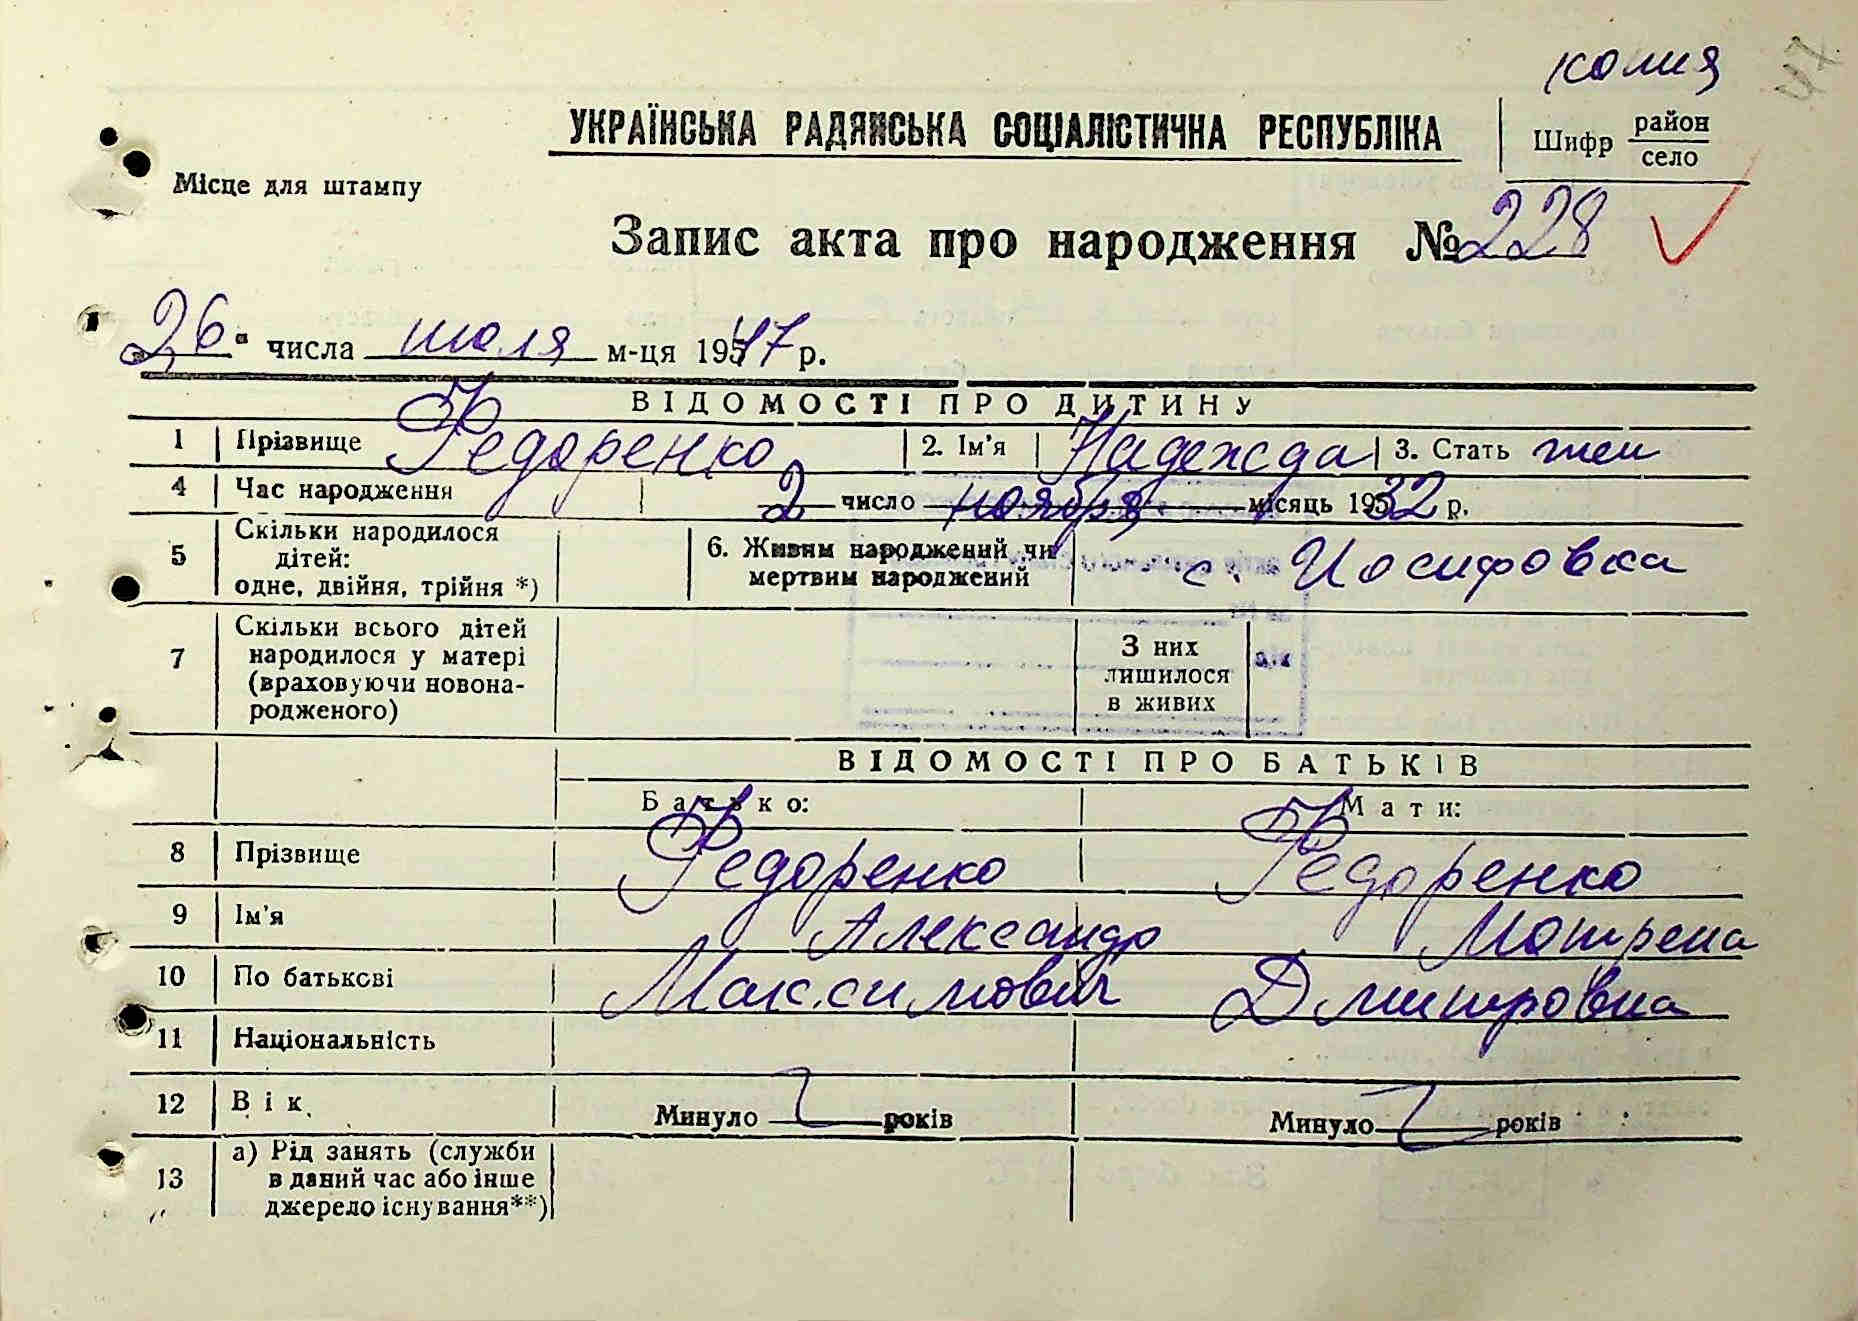 копия
47
УКРАЇНСЬКА РАДЯНСЬКА СОЦІАЛІСТИЧНА РЕСПУБЛІКА
Шифр район
село
Місце для штампу
Запис акта про народження № 228
26 " числа июля м-ця 1947 р.
ВІДОМОСТІ ПРО ДИТИНУ
1 Прізвище Федоренко 2. Ім'я Надежда 3. Стать жен
4 Час народження 2 число ноября місяць 1932 р.
5 Скільки народилося дітей: одне, двійня, трійня *) 6. Живим народжений чи мертвим народжений с. Иосифовка
7 Скільки всього дітей народилося у матері (враховуючи новонародженого) З них лишилося в живих
ВІДОМОСТІ ПРО БАТЬКІВ
Батько: Мати:
8 Прізвище Федоренко Федоренко
9 Ім'я Александр Мотрена
10 По батькові Максимович Дмитровна
11 Національність
12 Вік Минуло років Минуло років
13 а) Рід занять (служби в даний час або інше джерело існування**)